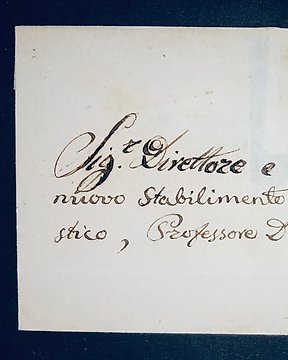 Sig.r Direttore e
nuovo Stabilimento
stico, Professore D